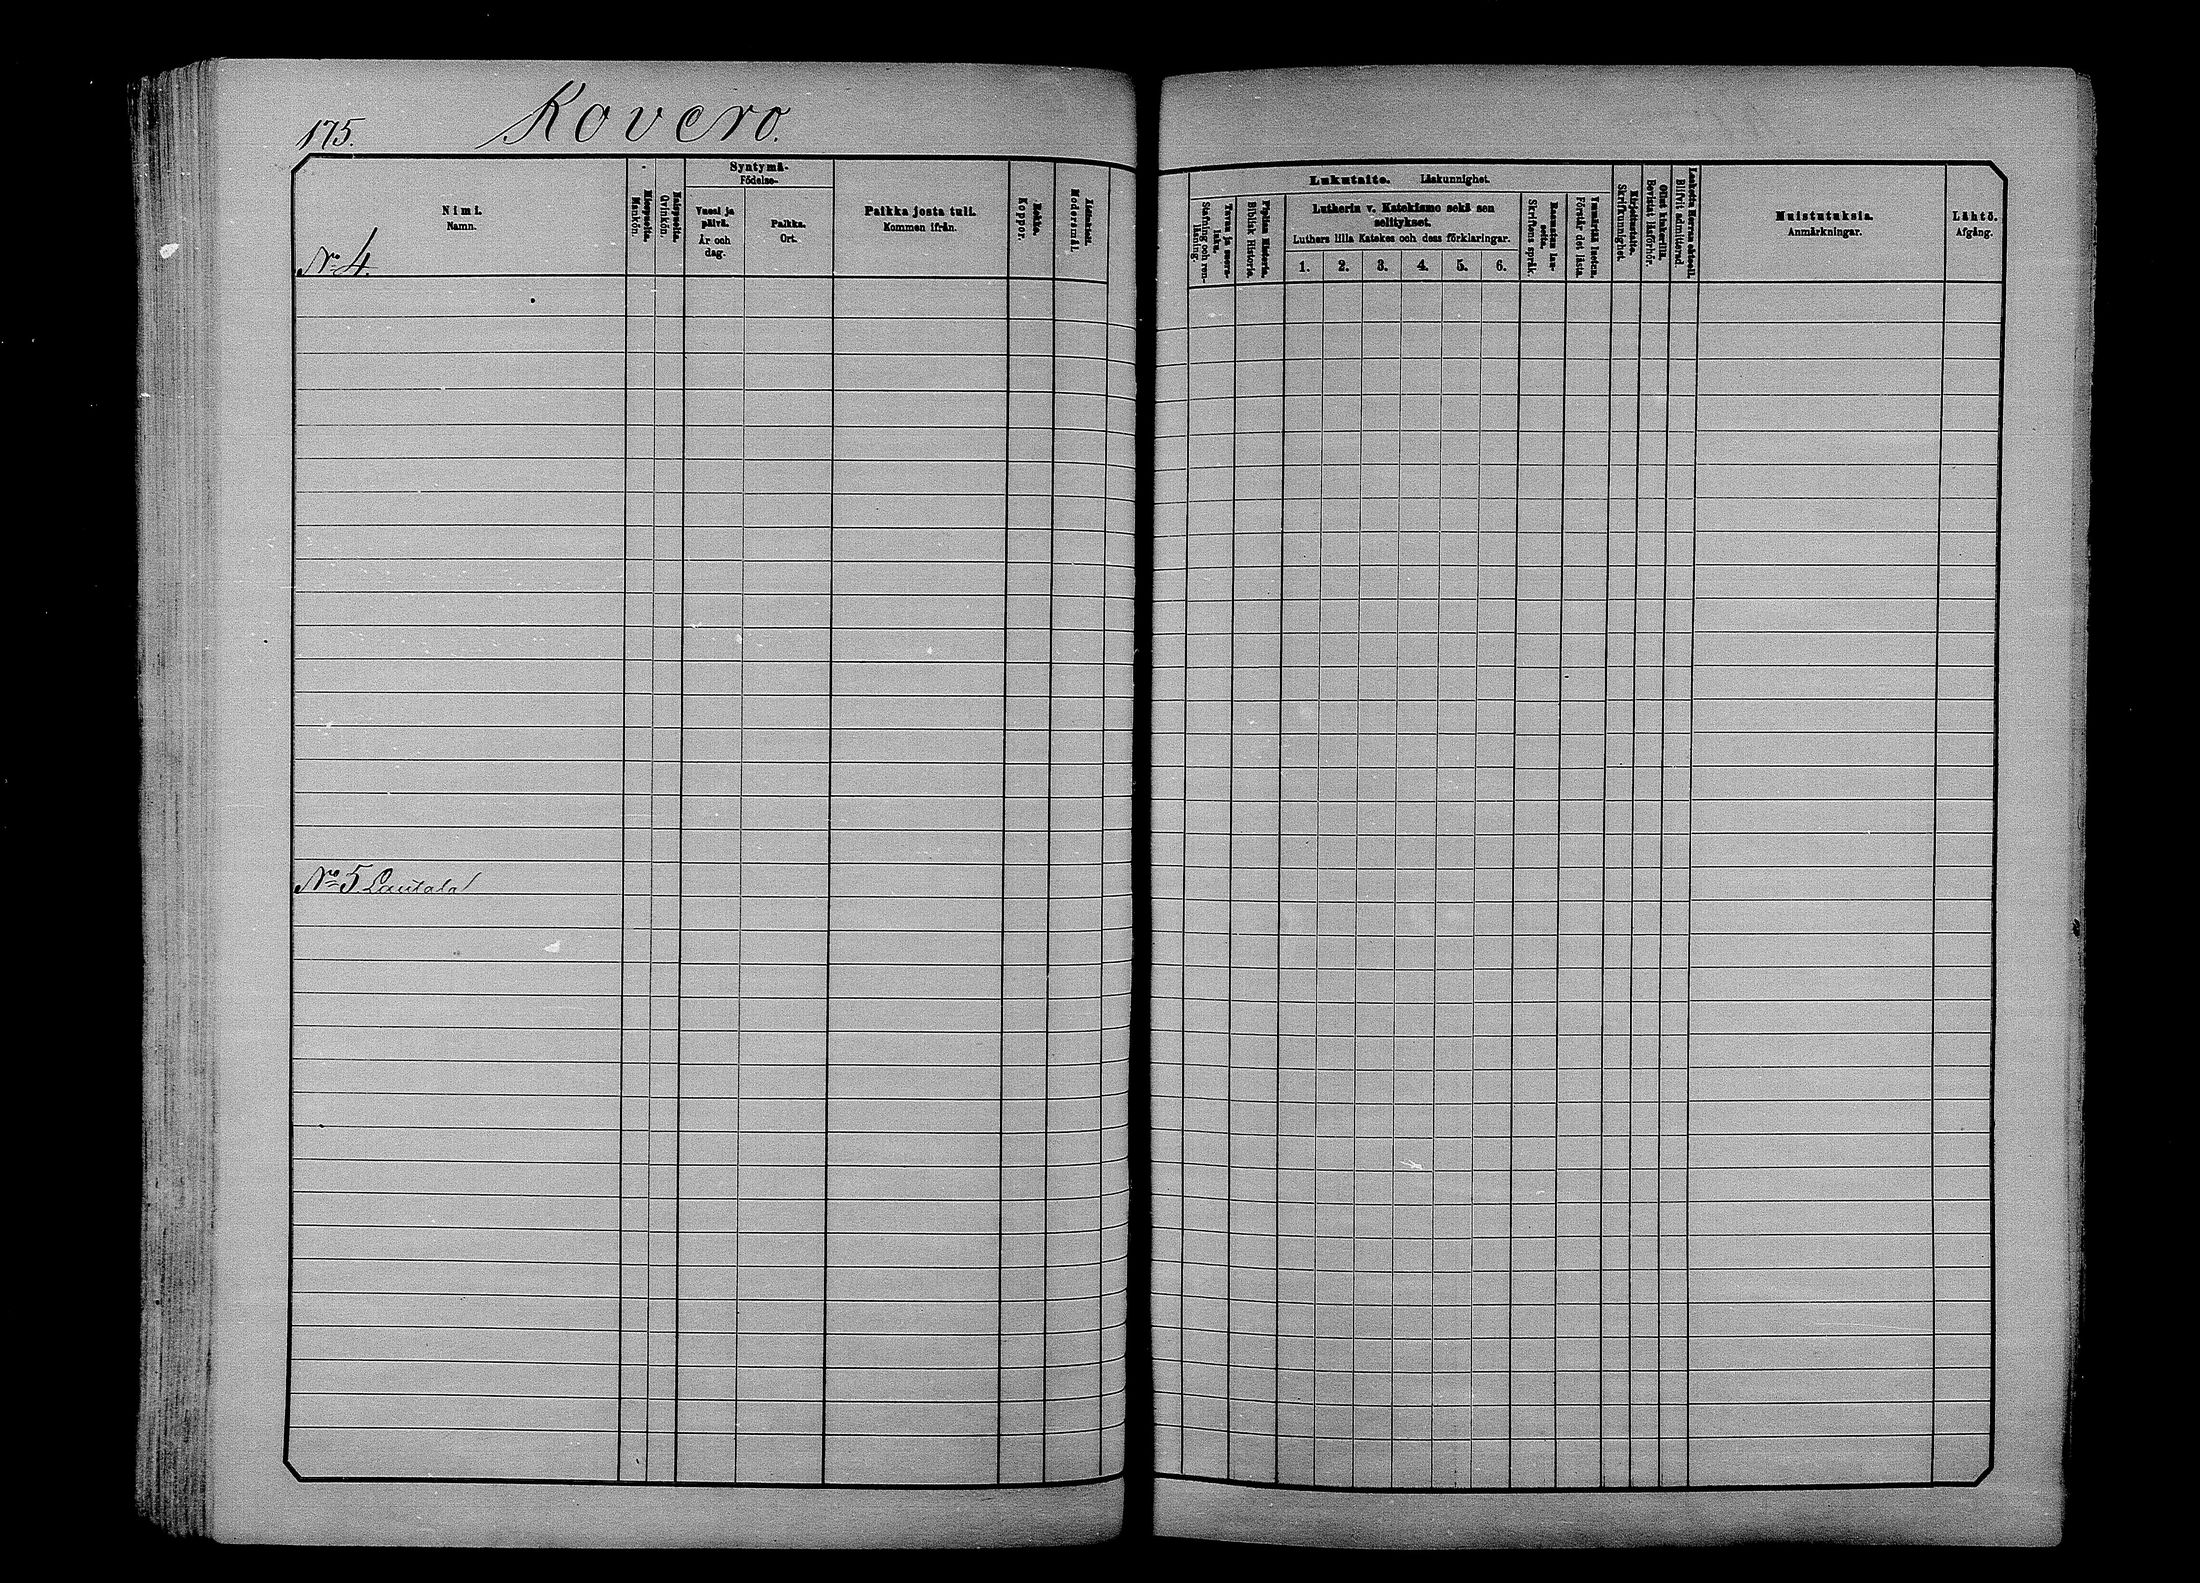 175.
Kovero.
Nimi.
Namn.
No 4.
Miespuolia.
Mankön.
Vaisypuolia.
Qvinkön.
Syntymä-
Födelse-
Vuosi ja
päivä.
År och
dag.
Paikka.
Ort.
Paikka josta tuli.
Kommen ifrån.
Rokko.
Koppor.
Äidinkieli.
Modersmål.
Lukutaito. Läskunnighet.
Tavuu ja suora-
luku.
Stafning och ren-
läsning.
Piplian Historia.
Biblisk Historia.
Lutherin v. Katekismo sekä sen
selitykset.
Luthers lilla Katekes och dess förklaringar.
1. 2. 3. 4. 5. 6.
Raamatun lau-
seita.
Skriftens språk.
Ymmärtää luetun.
Förstår det lästa.
Kirjoitustaito.
Skrifkunnighet.
Ollut kinkerillä.
Bevistat läsförhör.
Laskettu Herran ehtooll.
Blifvit admitterad.
Muistutuksia.
Anmärkningar.
Lähtö.
Afgång.
No 5 Lautala